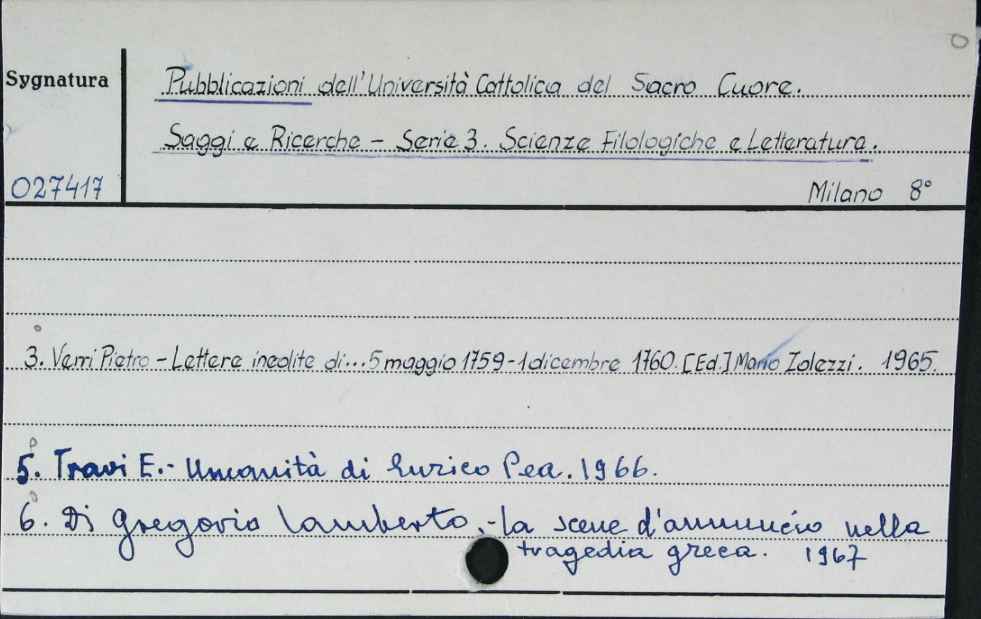 Sygnatura
Pubblicazioni dell'Università Cattolica del Sacro Cuore.
Saggi e Ricerche - Serie 3. Scienze Filologiche e Letteratura.
027417
Milano 8°
3. Verri Pietro - Lettere inedite di...5 maggio 1759-1 dicembre 1760. [Ed.] Mario Zolezzi. 1965.
5. Travi E.- Umanità di Enrico Pea. 1966.
6. Di Gregorio Lamberto.-La scene d'annuncio nella
tragedia greca. 1967